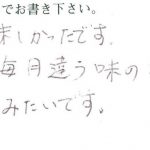 でお書き下さい。
味しかったです。
毎月違う味の
みたいです。